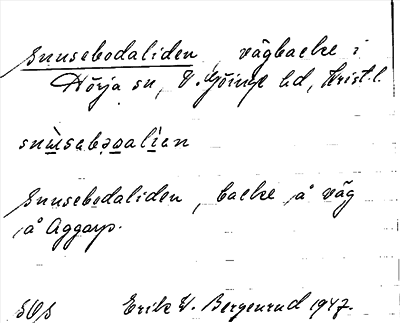 Snusebodaliden, vägbacke i
Hörja sn, V. Göinge hd, Krist. l.
snùsabꝍalìen
Snusebodaliden, backe å väg
å Aggarp.
Erik W. Bergenrud 1947.